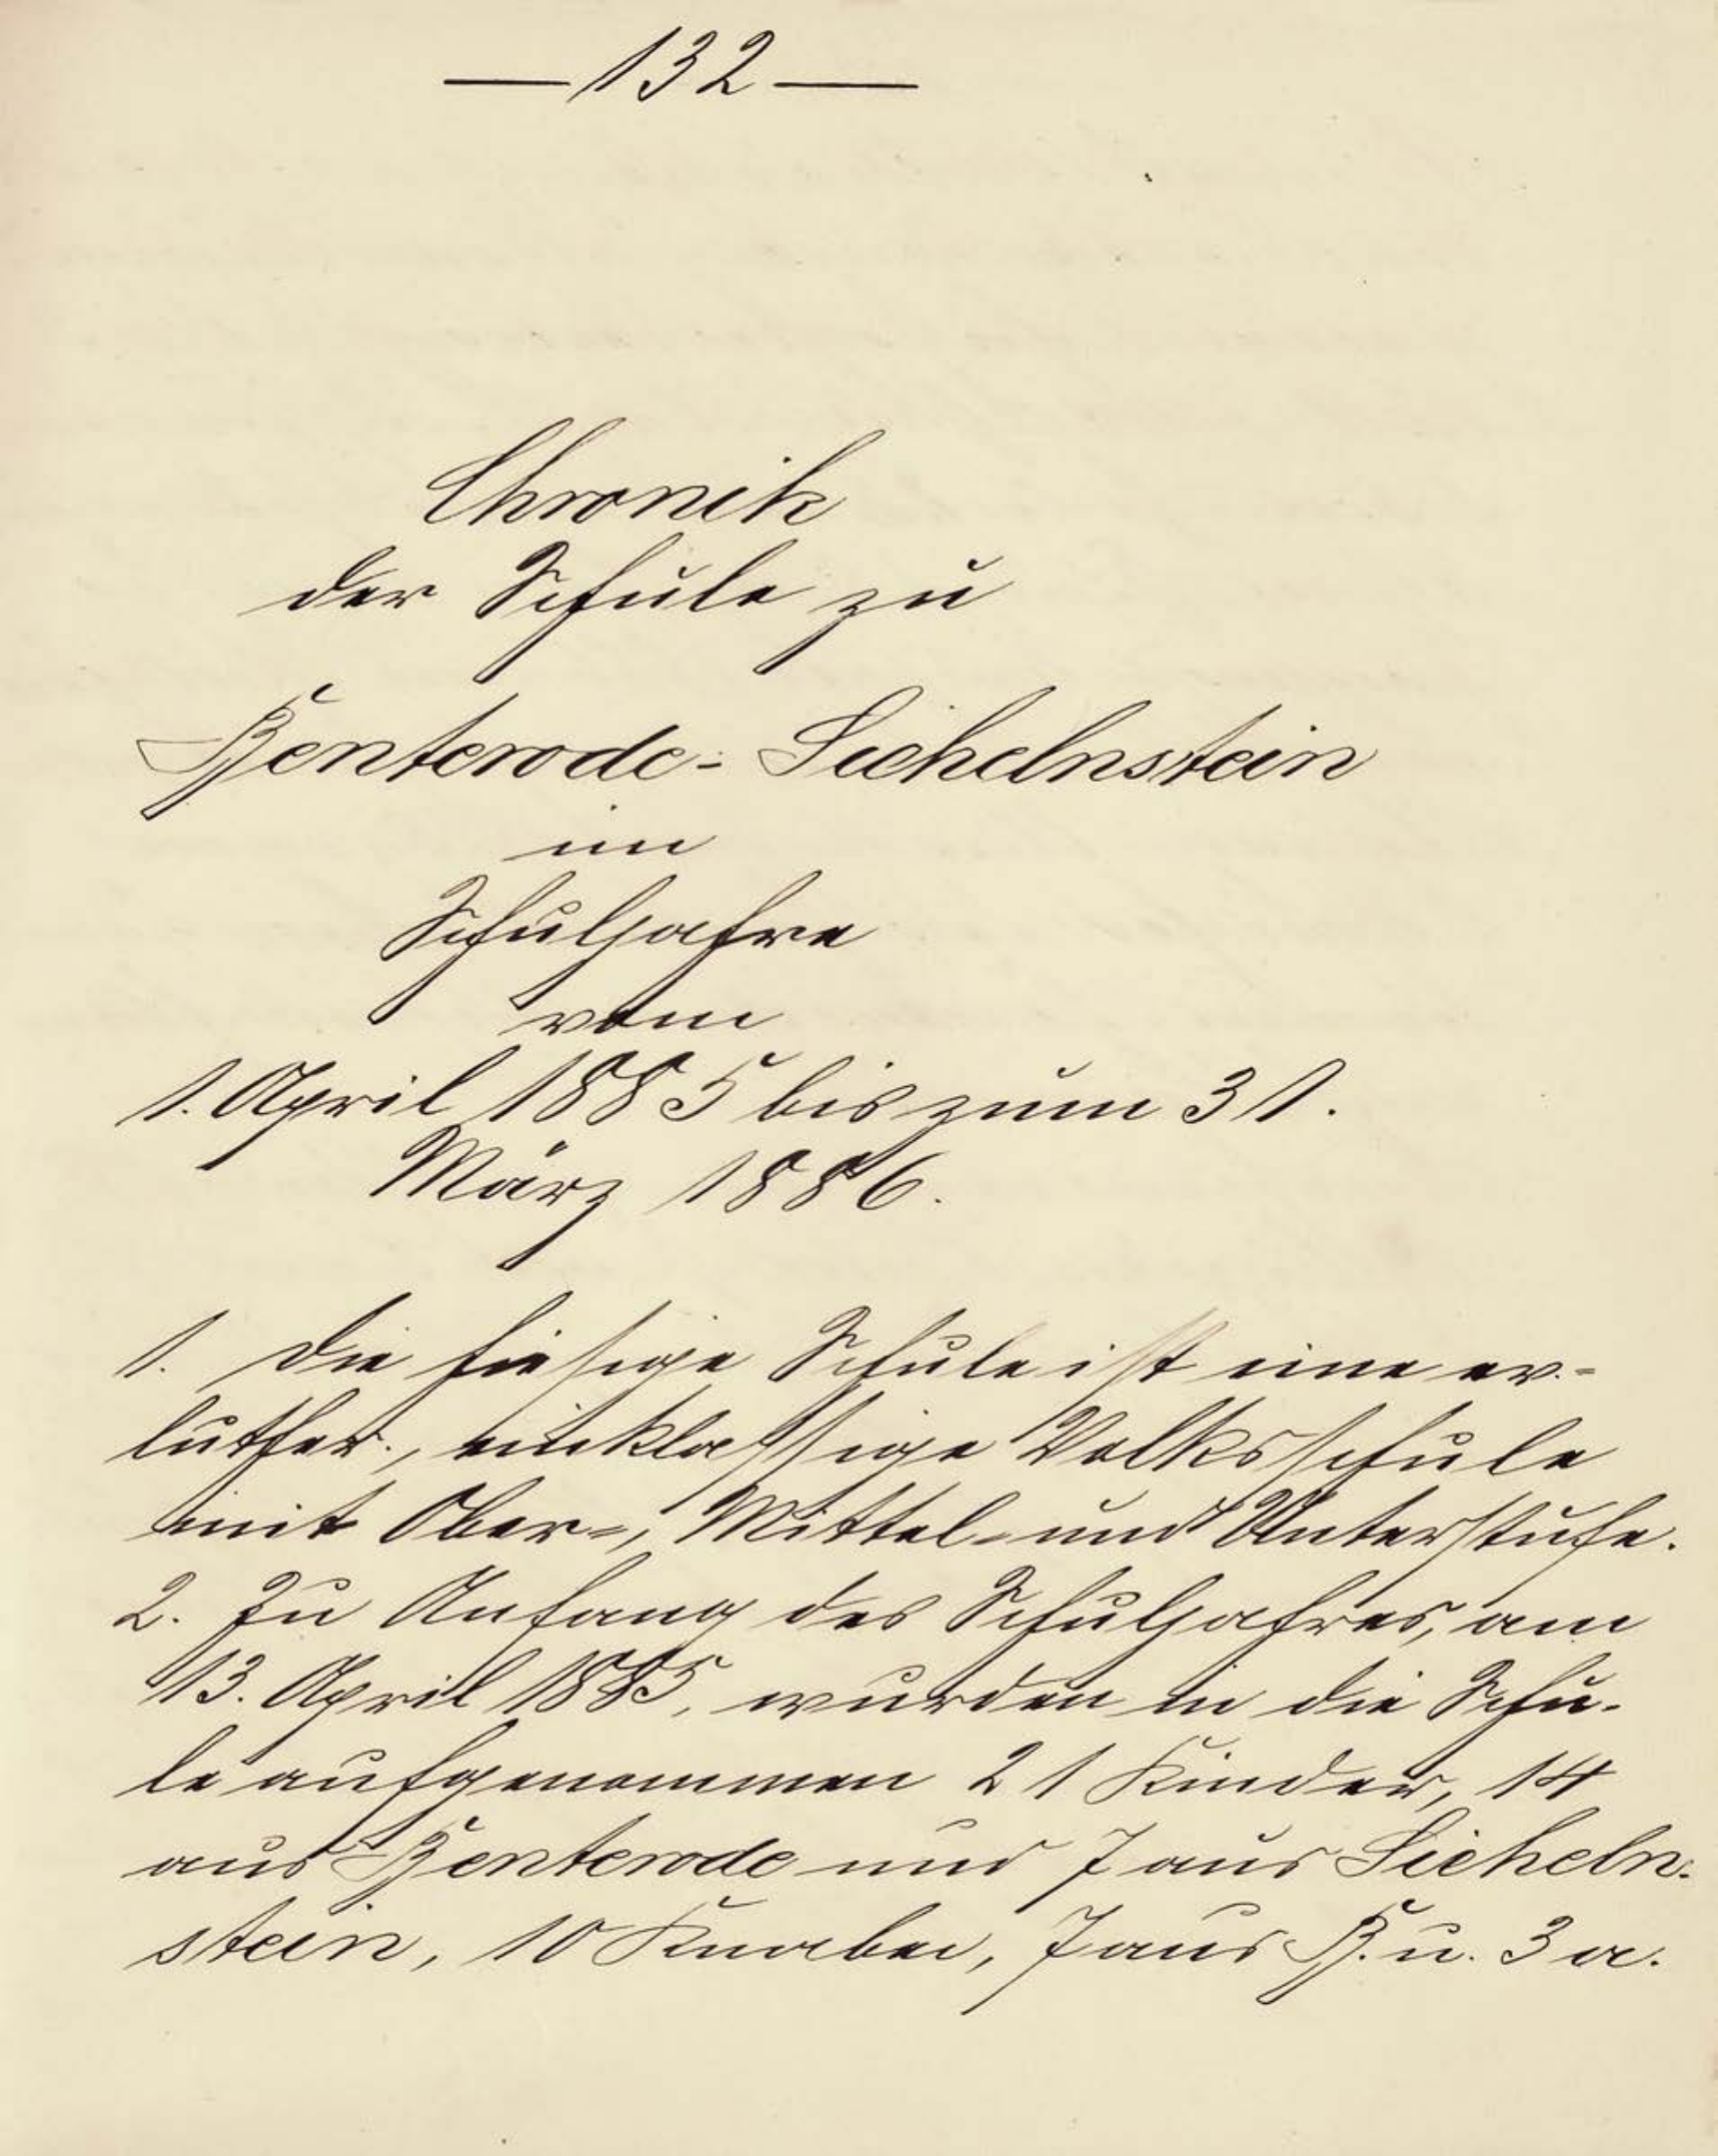 — 132 —
Chronik
der Schule zu
Benterode- Sichelnstein
im
Schuljahre
vom
1. April 1885 bis zum 31.
März 1886.
1. Die hiesige Schule ist eine ev.-
luther., einklassige Volksschule
mit Ober-, Mittel- und Unterstufe.
2. Zu Anfang des Schuljahres, am
13. April 1885, wurden in die Schu-
le aufgenommen 21 Kinder, 14
aus Benterode und 7 aus Sicheln-
stein, 10 Knaben, 7 aus B. u. 3 a.